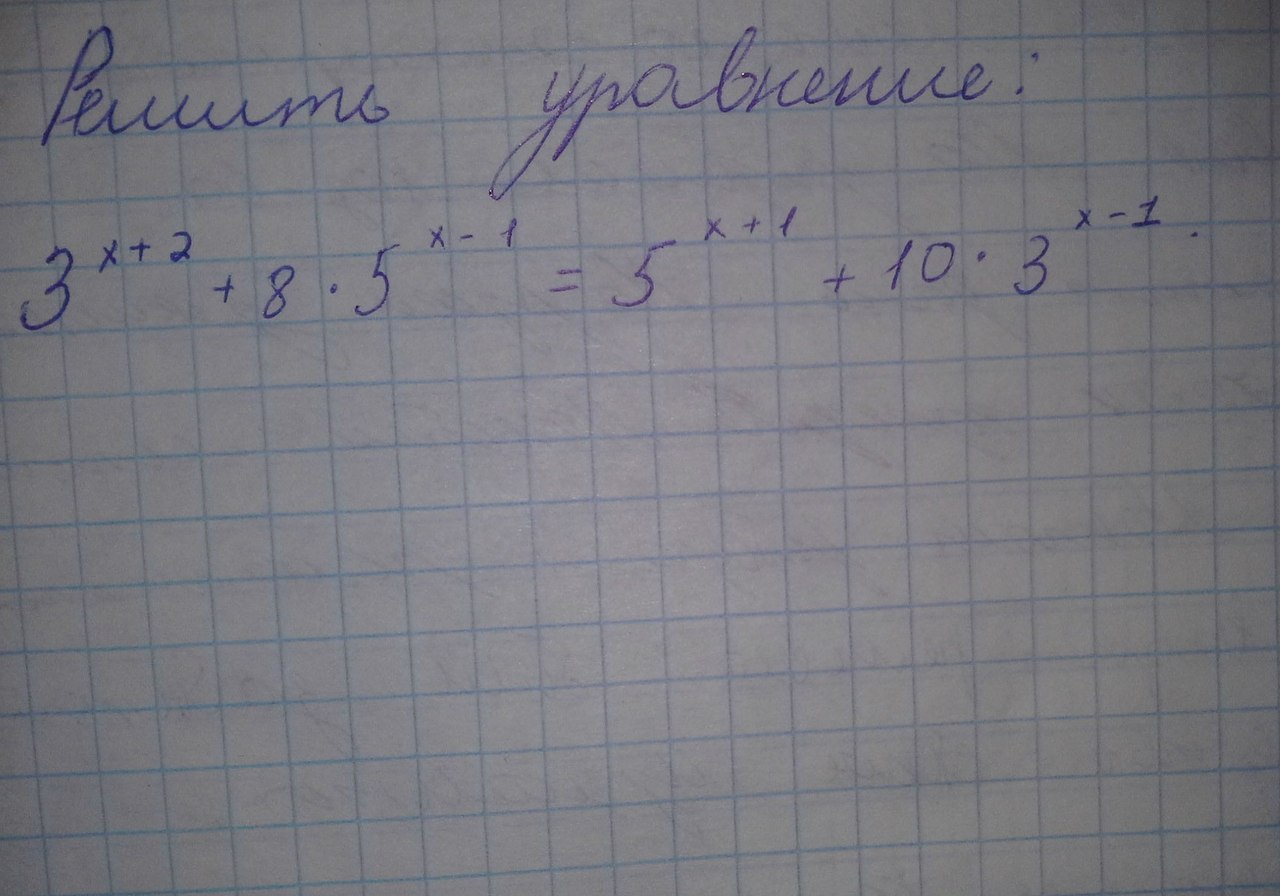 Решить уравнение:
3^{x+2} + 8 · 5^{x-1} = 5^{x+1} + 10 · 3^{x-1}.